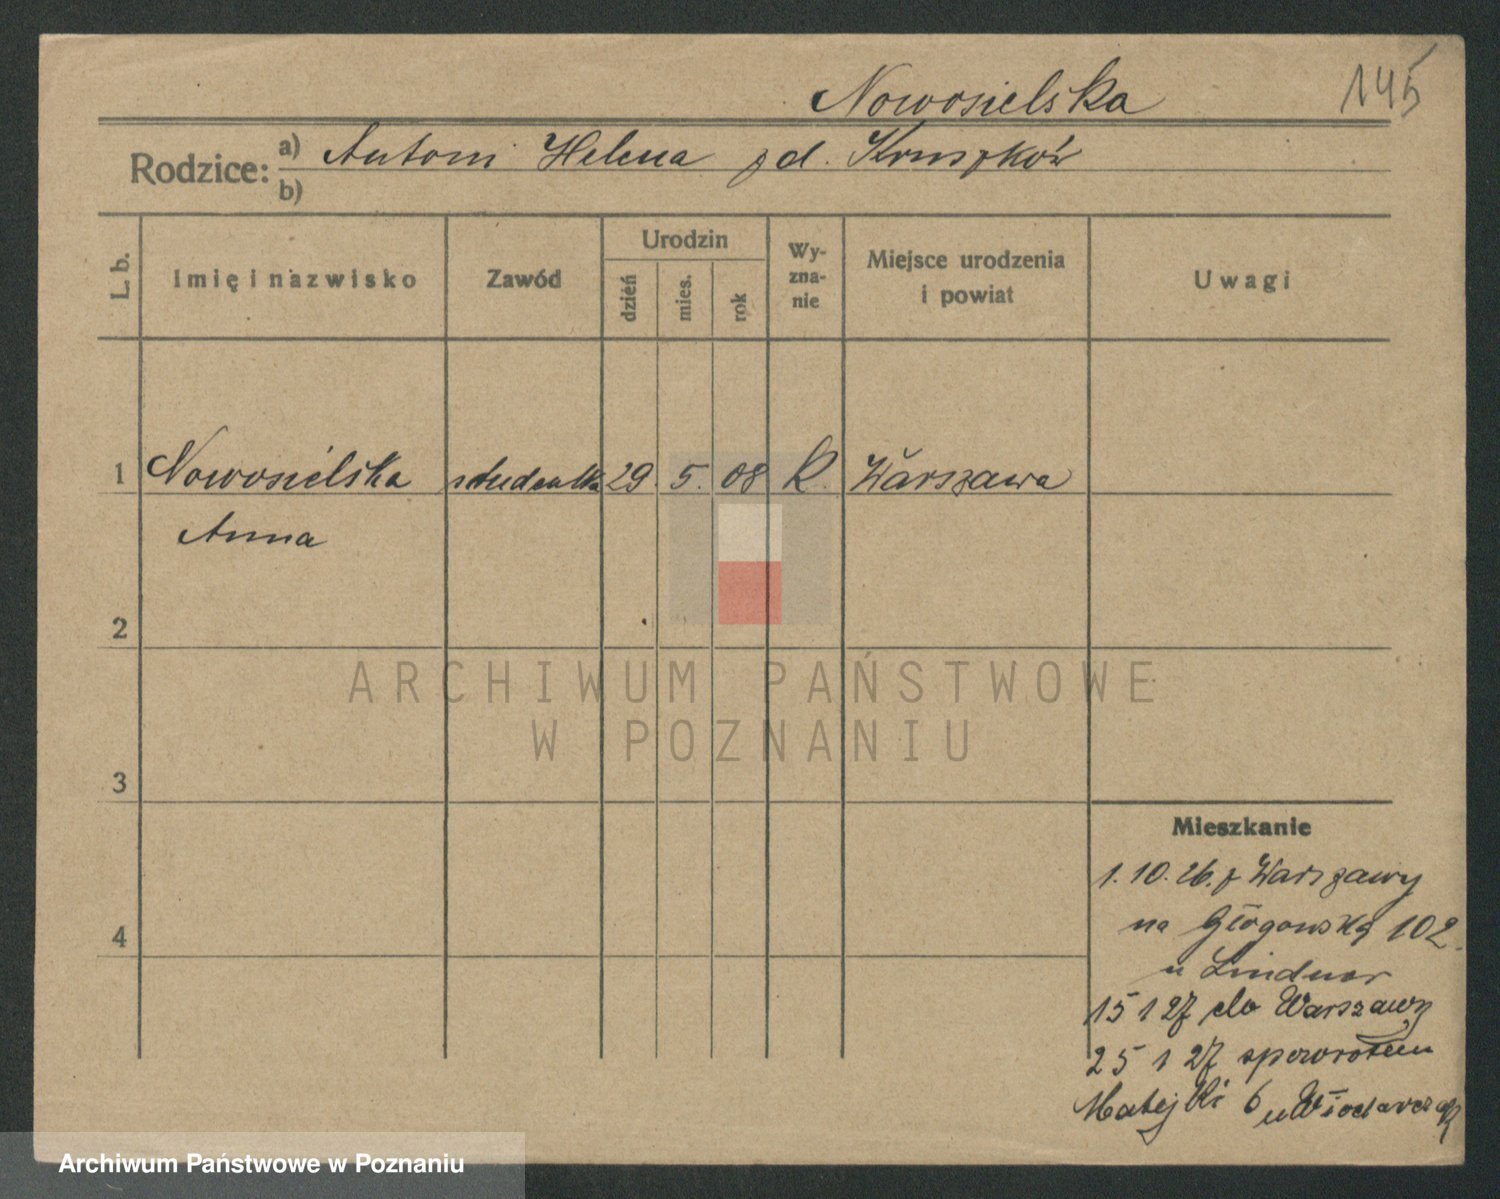 Nowosielska
145
Rodzice: a) Antoni Helena zd. Kruszków
b)
L. b.
Imię i nazwisko
Zawód
Urodzin
dzień
mies.
rok
Wy-
zna-
nie
Miejsce urodzenia
i powiat
Uwagi
1 Nowosielska studentka 29. 5. 08 R. Warszawa
Anna
2
3
4
Mieszkanie
1. 10. 26. z Warszawy
na Głogowską 102.
u Lindner
15 1 27 do Warszawy
25 1 27 spowrotem
Matejki 6 u Włodarczak
ARCHIWUM PAŃSTWOWE
W POZNANIU
Archiwum Państwowe w Poznaniu